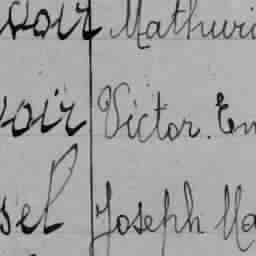 voir Mathuri
voir Victor. Em
sel Joseph Ma